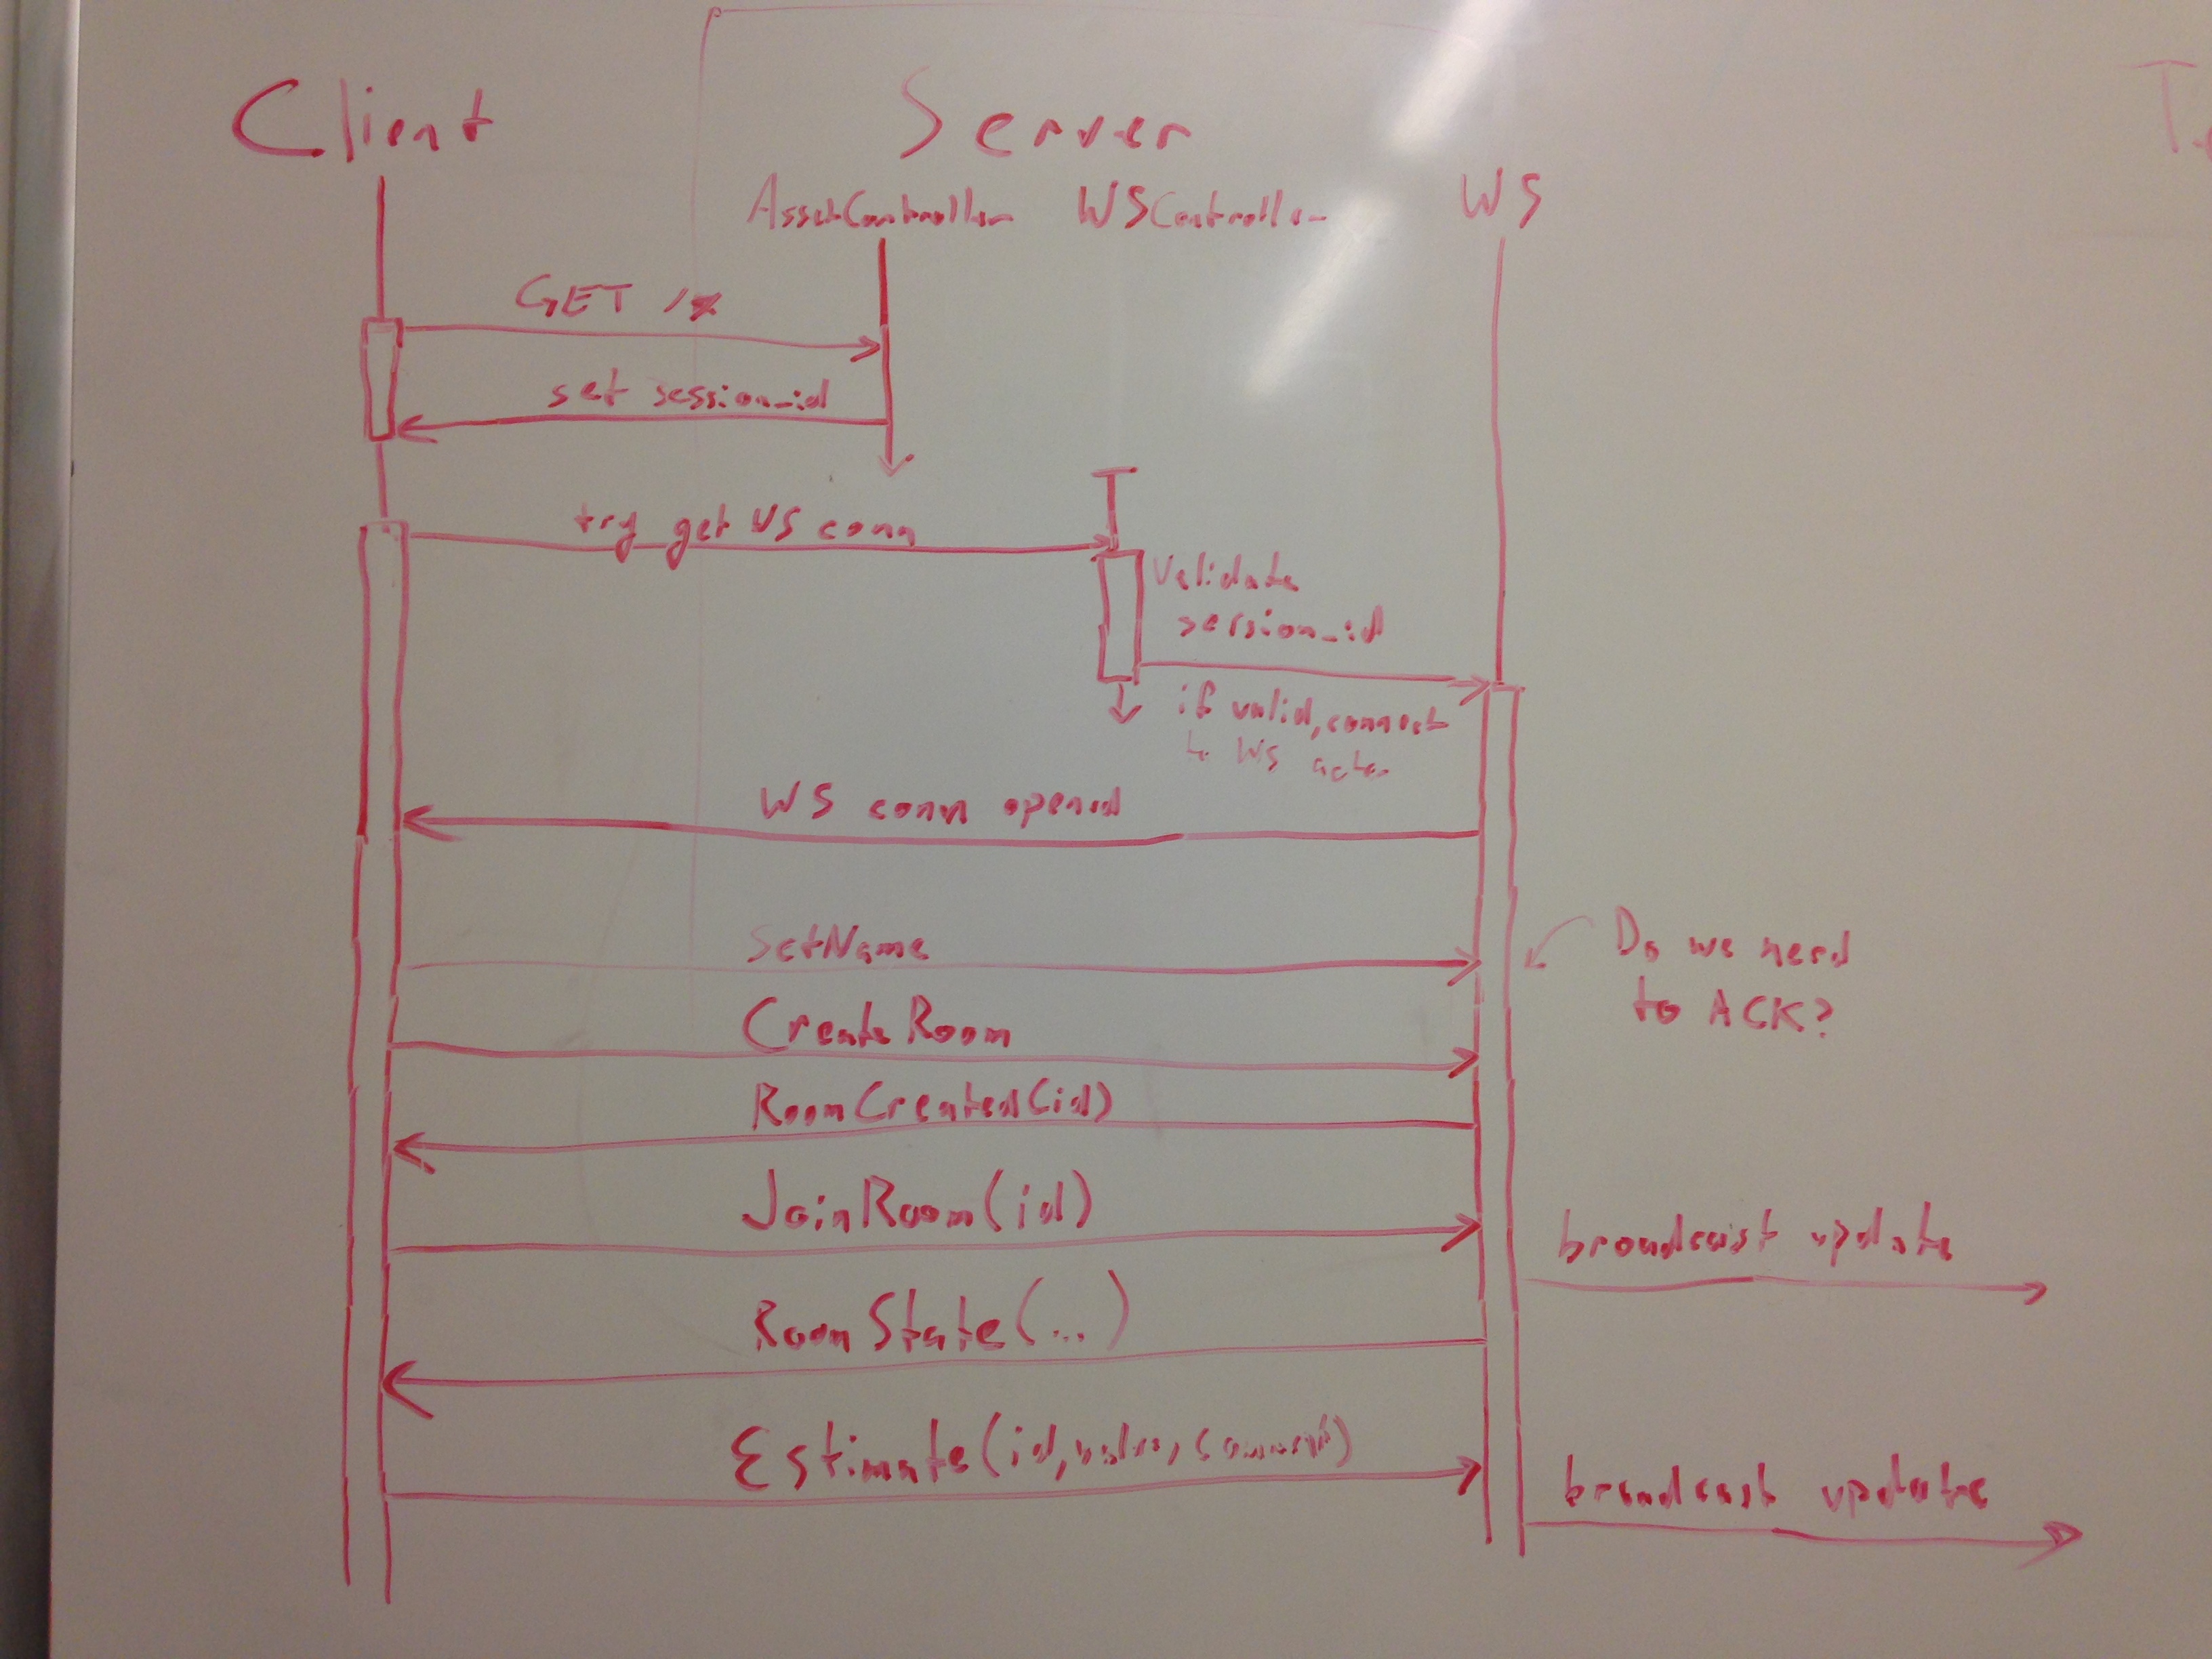 Client
Server
AssetController
WSController
WS
GET /*
set session_id
try get WS conn
Validate
session_id
if valid, connect
to WS actor
WS conn opened
SetName
Do we need
to ACK?
CreateRoom
RoomCreated(id)
JoinRoom(id)
broadcast update
RoomState(...)
Estimate(id, value, comment)
broadcast update